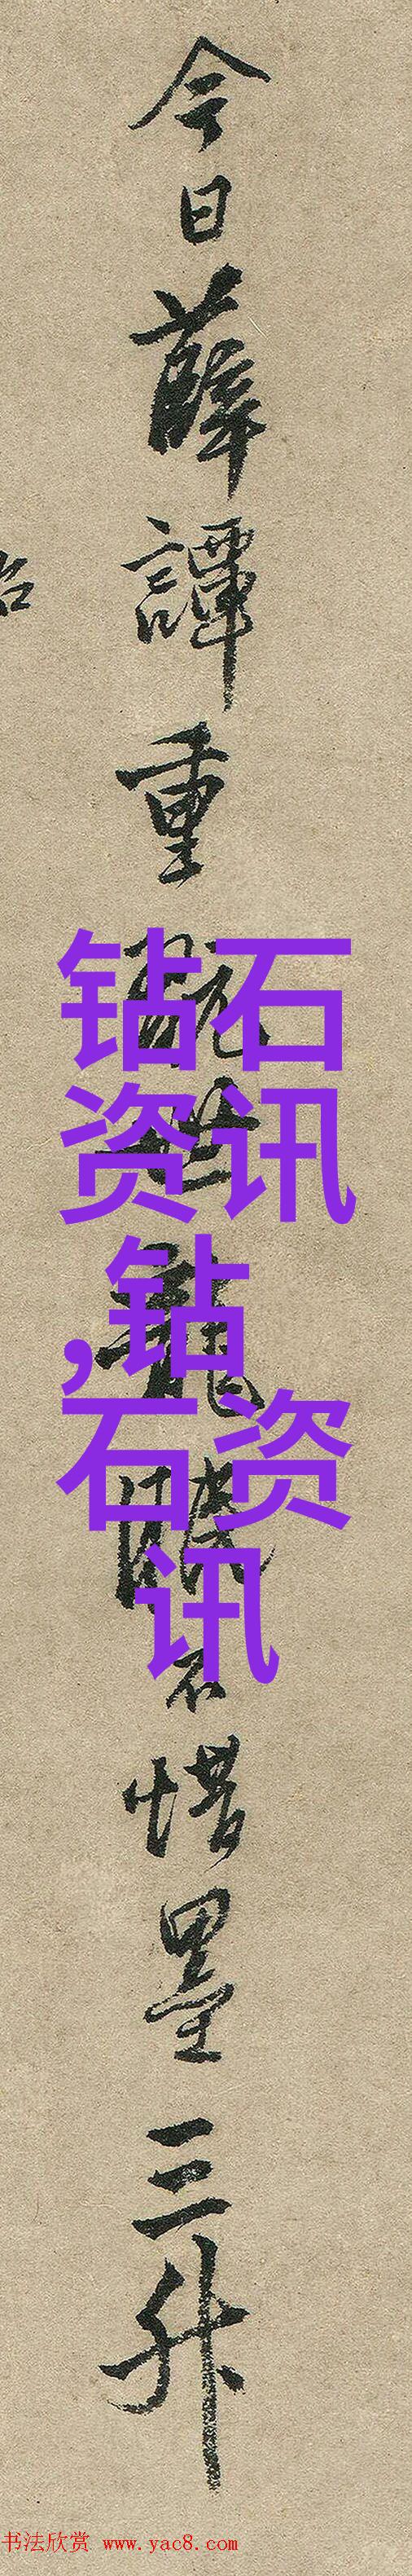 今日薛譚重世龍不惜墨三升
钻石
资讯
,钻
石资
讯
书法欣赏 www.yac8.com